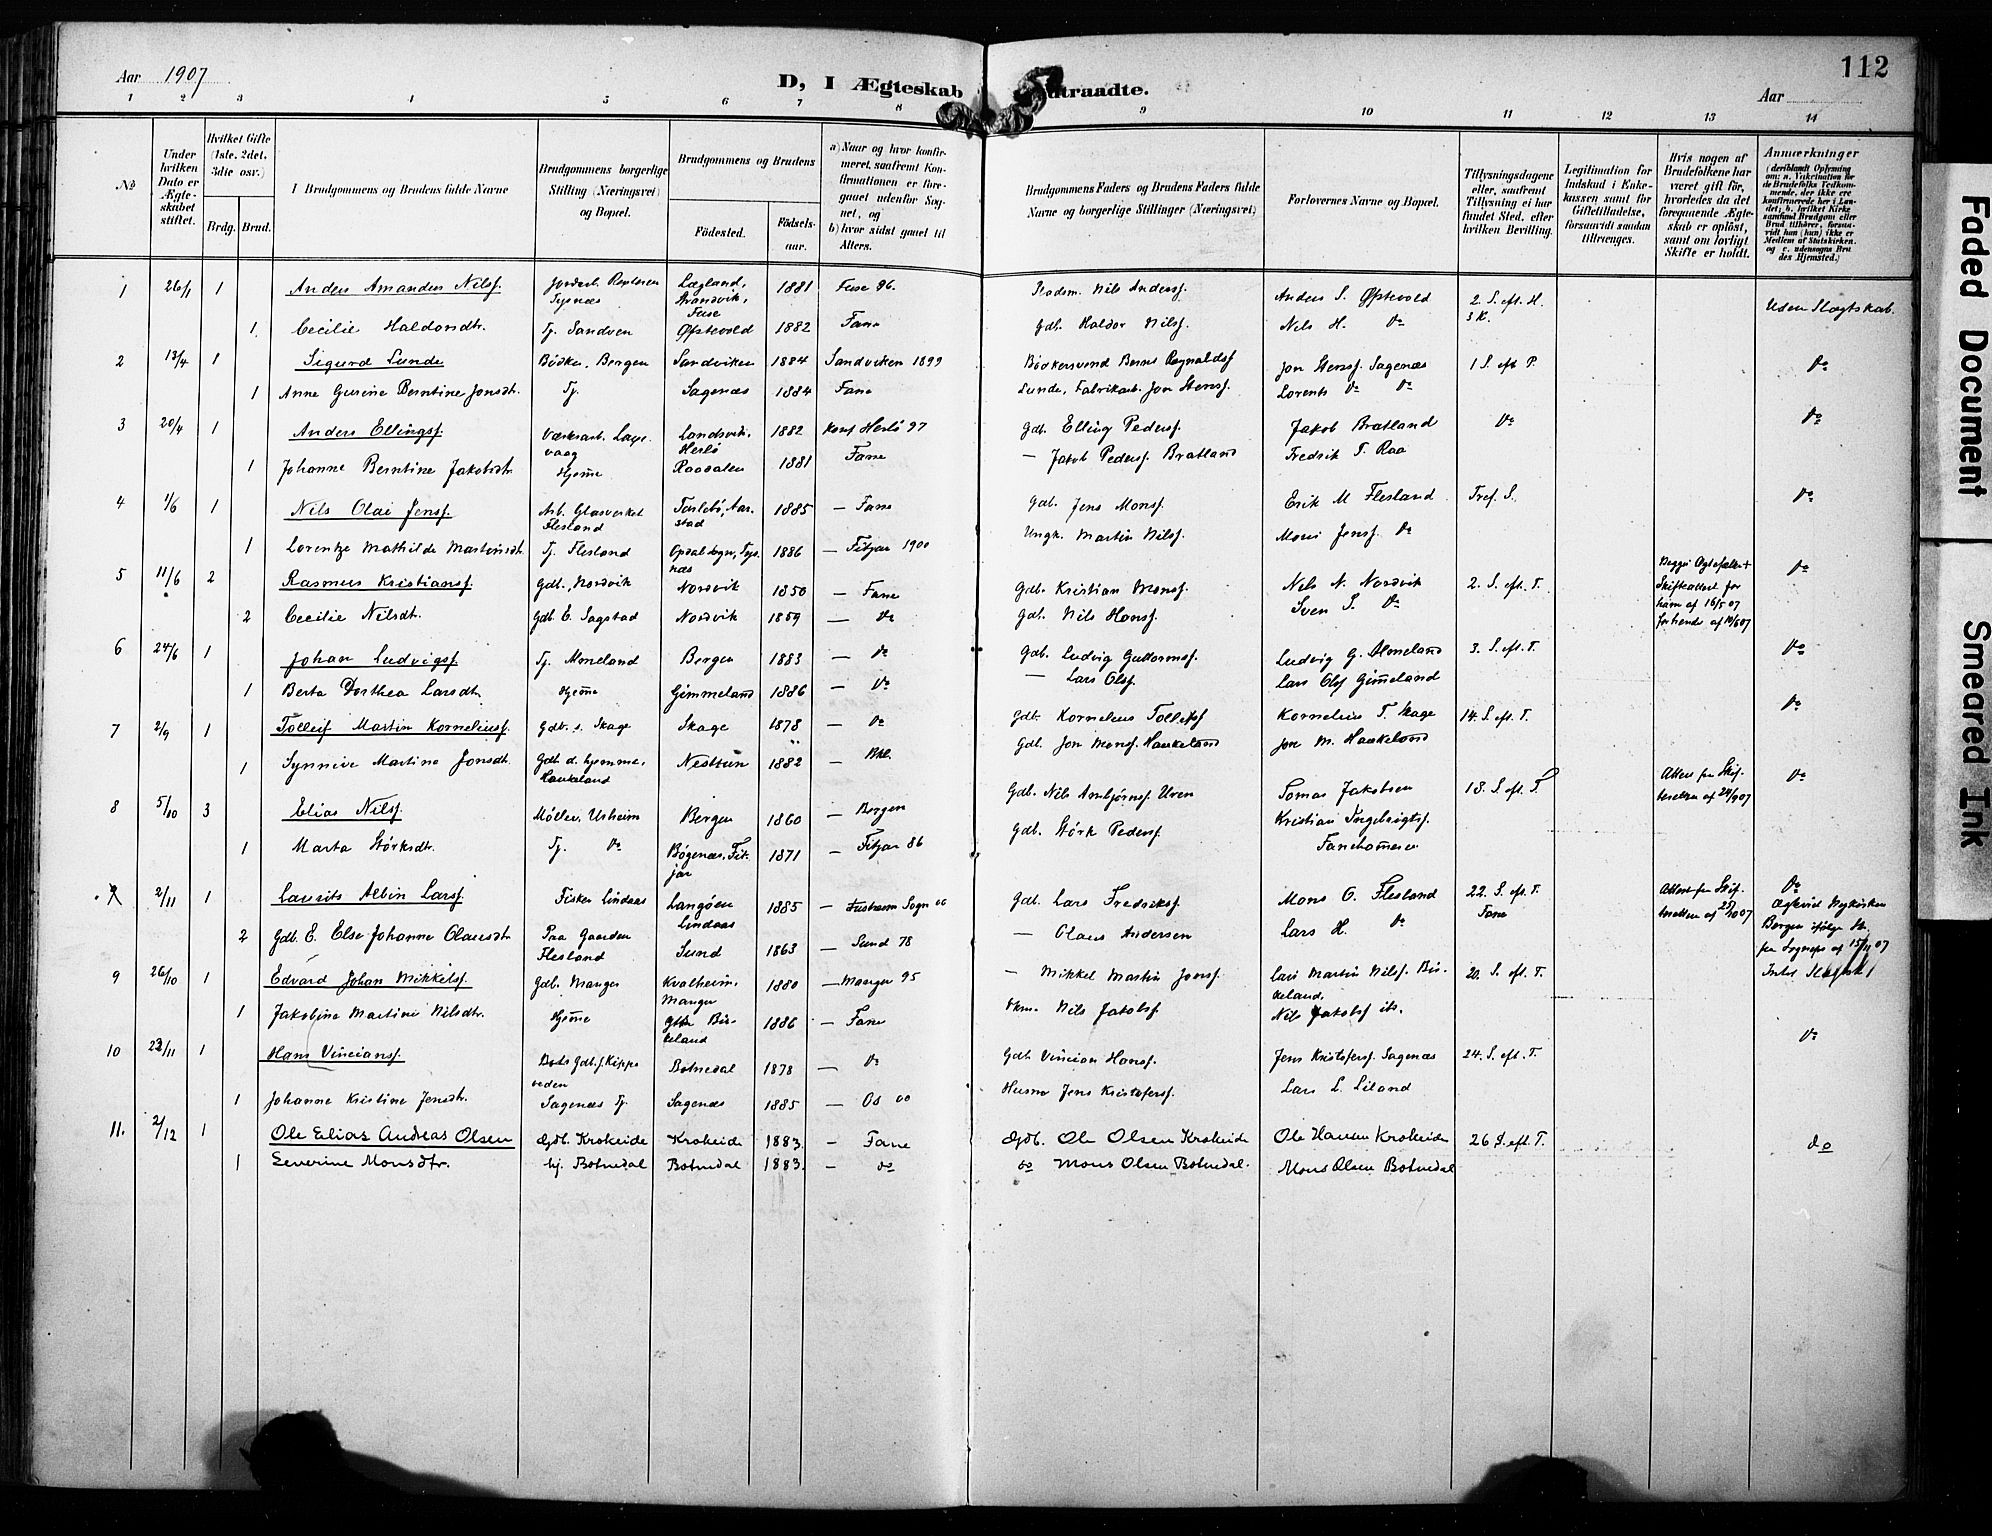 112
Aar 1907
D, I Ægteskab Indtraadte.
Aar
1 2 3 4 5 6 7 8 9 10 11 12 13 14
No
Under hvilken Dato er Ægteskabet stiftet.
Hvilket Gifte (1ste, 2det, 3die osv.)
Brdg. Brud.
I Brudgommens og Brudens fulde Navne
Brudgommens borgerlige Stilling (Næringsvei) og Bopæl.
Brudgommens og Brudens
Födested.
Födsels-aar.
a) Naar og hvor konfirmeret, saafremt Konfirmationen er foregaaet udenfor Sognet, og
b) hvor sidst gaaet til Alters.
Brudgommens Faders og Brudens Faders fulde Navne og borgerlige Stillinger (Næringsvei)
Forlovernes Navne og Bopæl.
Tillysningsdagene eller, saafremt Tillysning ei har fundet Sted, efter hvilken Bevilling.
Legitimation for Indskud i Enkekassen samt for Giftetilladelse, forsaavidt saadan tiltrænges.
Hvis nogen af Brudefolkene har været gift før, hvorledes da det foregaaende Ægteskab er oplöst, samt om lovligt Skifte er holdt.
Anmærkninger
1 26/1 1 Anders Amandus Nilsf. Tysnæs Lægland, Strandvik, Fuse 1881 Fuse 96. Nils Andersf. Anders S. Øpstevold 2. S. eft. H. 3 K. Uden Slægtskab.
1 Cecilie Haldorsdtr. Tj. Sandven Øpstevold 1882 Fane Gdb. Haldor Nilsf. Nils H. Do
2 13/4 1 Sigurd Lunde Bödker, Bergen Sandviken 1884 Sandviken 1899 Bödkersvend Bernt Reynaldsf Jon Stensf. Sagenæs 1 S. eft P. Do
1 Anne Gurine Berntine Jonsdtr. Tj. Sagenæs 1884 Fane Lunde, Fabrikarb. Jon Stensf. Lorents Do Do
3 20/4 1 Anders Ellingsf. Værksarb. Laxevaag Landsvik, Herlö 1882 Konf Herlö 97 Gdb. Elling Pedersf. Jakob Bratland Do Do
1 Johanne Berntine Jakobsdtr Hjemme Raadalen 1881 Fane — Jakob Pedersf. Bratland Fredrik T. Raa
4 1/6 1 Nils Olai Jensf. Arb. Glasverket Flesland 1885 — Fane Gdb. Jens Monsf. Erik M Flesland Tref. S. Do
1 Lorentze Mathilde Martinsdt. Tj. Flesland Opdal Sogn, Tysnæs 1886 — Fitjar 1900 Ungk. Martin Nilsf. Mons Jensf. Do
5 11/6 2 Rasmus Kristiansf. Gdb., Nordvik Nordvik 1850 — Fane Gdb. Kristian Monsf. Nils N. Nordvik 2. S. eft. T. Do
Skifteattest for ham af 16/5 07
2 Cecilie Nilsdt. Gdb. E. Sagstad Nordvik 1859 — Do Gdb. Nils Hansf. Sven S. Do
6 24/6 1 Johan Ludvigsf. Tj. Moneland Bergen 1883 — Do Gdb. Ludvig Guttormsf. Ludvig G. Moneland 3. S. eft. T. Do
1 Berta Dorthea Larsdt. Hjemme Gimmeland 1886 — Do — Lars Olsf. Lars Olsf Gimmeland
7 2/9 1 Tolleif Martin Korneliusf. Gdb. s. Skage Skage 1878 — Do Gdb. Kornelius Tollefsf Kornelius T. Skage 14. S. eft. T. Do
1 Synneve Martina Jonsdt. Gdb. d. hjemme, Haukeland Nesttun 1882 — Gdb. Jon Monsf. Haukeland Jon M. Haukeland
8 5/10 3 Elias Nilsf. Möller, Urheim Bergen 1860 — Bergen Gdb. Nils Arnbjörnsf. Uren Tomas Jakobsen 18. S. eft. T Attest fra Skifteretten af 24/9 07 Do
1 Marta Störksdtr. Tj. Do Bøgenæs, Fitjar 1871 — Fitjar 86 Gdb. Störk Pedersf. Kristian Ingebrigtsf. Fanehammeren
2/11 1 Laurits Albin Larsf. Fisker Lindaas Langøen Lindaas 1885 Gdb. Lars Fredriksf. Mons O. Flesland 22. S. eft. T. Fane Attest fra Skifteretten af 25/10 07 Do
Ægtevid Nykirken Bergen ifölge
2 Gdb. E. Else Johanne Olausdt. Paa Gaarden Flesland Sund 1863 — Sund 78 — Olaus Andersen Lars H. Do fra Sognepr. af 15/11 07
9 26/10 1 Edvard Johan Mikkelsf. Gdb. Manger Kvalheim, Manger 1880 — Manger 95 — Mikkel Martin Jonsf. Lars Martin Nilsf. Birkeland, 20. S. eft. T. Intet Slægtsk
1 Jakobine Martine Nilsdtr. Hjemme Birkeland 1886 — Fane Nils Jakobsf Nils Jakobsf ib.
10 23/11 1 Hans Vinciansf. Botnedal 1878 — Do Gdb. Vincian Hansf. Jens Kristofersf. Sagenæs 24. S. eft. T. Do
1 Johanne Kristine Jensdt. Sagenæs Tj. Sagenæs 1885 — Os 00 Husm Jens Kristofersf. Lars L. Liland
11. 2/12 1 Ole Elias Andreas Olsen Gdb. Krokeide Krokeide 1883. — Fane Gdb. Ole Olsen Krokeide Ole Hansen Krokeide 26 S. eft. T. do
1 Severine Monsdtr. hj. Botnedal Botnedal 1883. — do do Mons Olsen Botnedal. Mons Olsen Botnedal
Faded Document
Smeared Ink